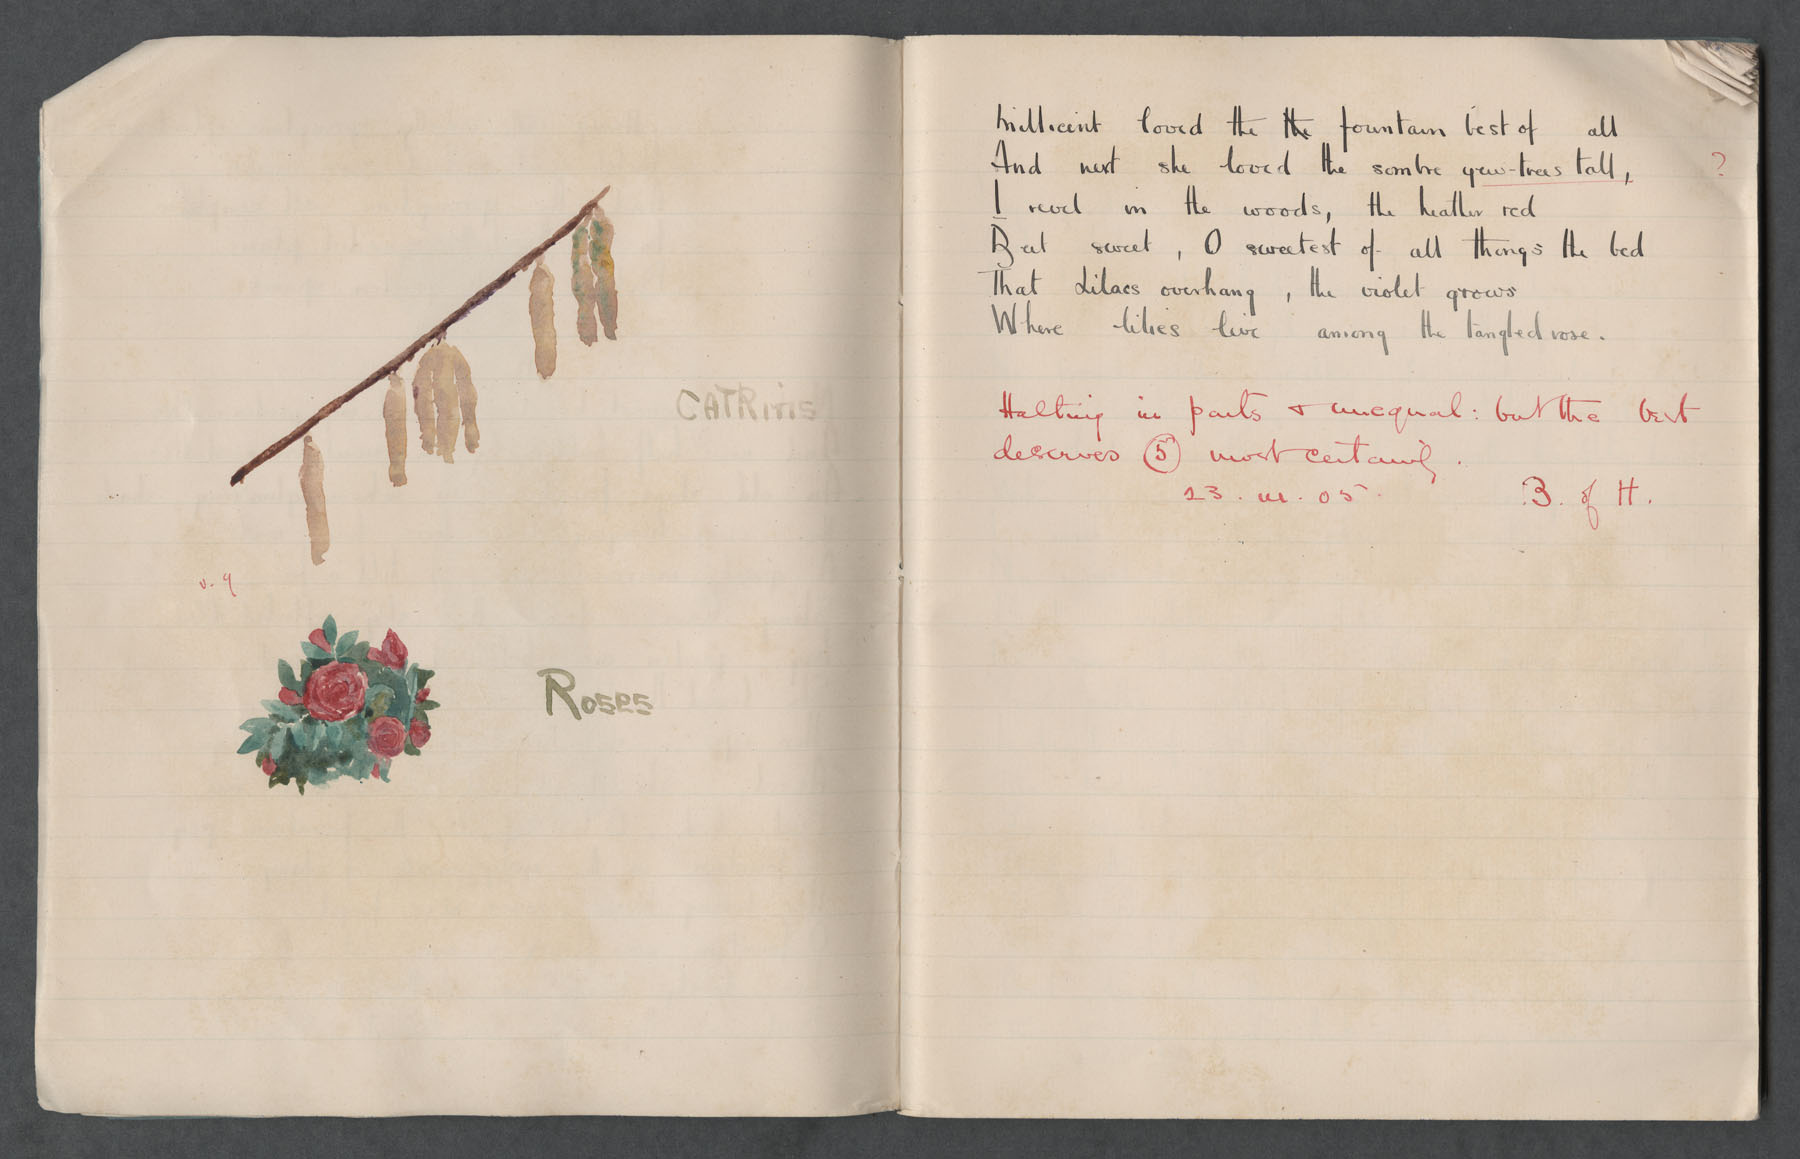 CATKINS
v. g
Roses
Millicent loved the the fountain best of all
And next she loved the sombre yew-trees tall,
?
I revel in the woods, the heather red
But sweet, O sweetest of all things the bed
That Lilacs overhang, the violet grows
Where lilies live among the tangled rose.
Halting in parts & unequal: but the best
deserves 5 most certainly.
23. III. 05.
B. of H.